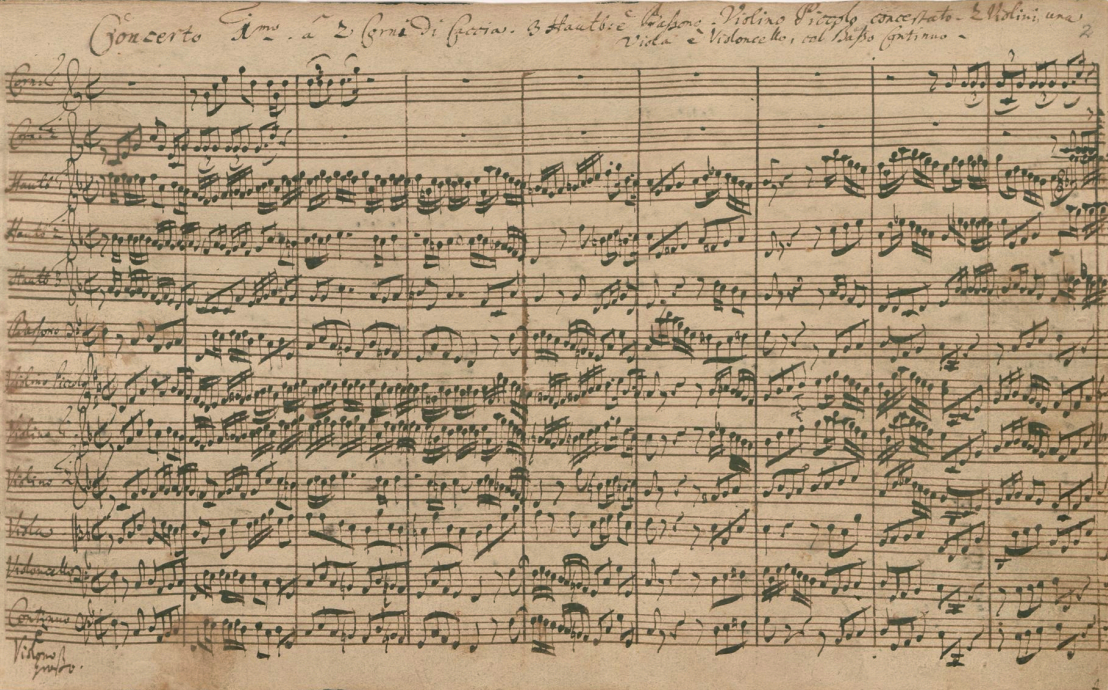 Concerto 1mo à 2 Corni di Caccia. 3 Hautb: è Bassono. Violino Piccolo concertato. 2 Violini, una
Viola è Violoncello, col Basso Continuo.
2
Corn. 1
Corn. 2
Hautb 1
Hautb 2
Hautb 3
Bassono
Violino Piccolo
Violino 1
Violino 2
Viola
Violoncello
Continuo
Violono
grosso.